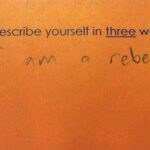 escribe yourself in three w
I am a rebe